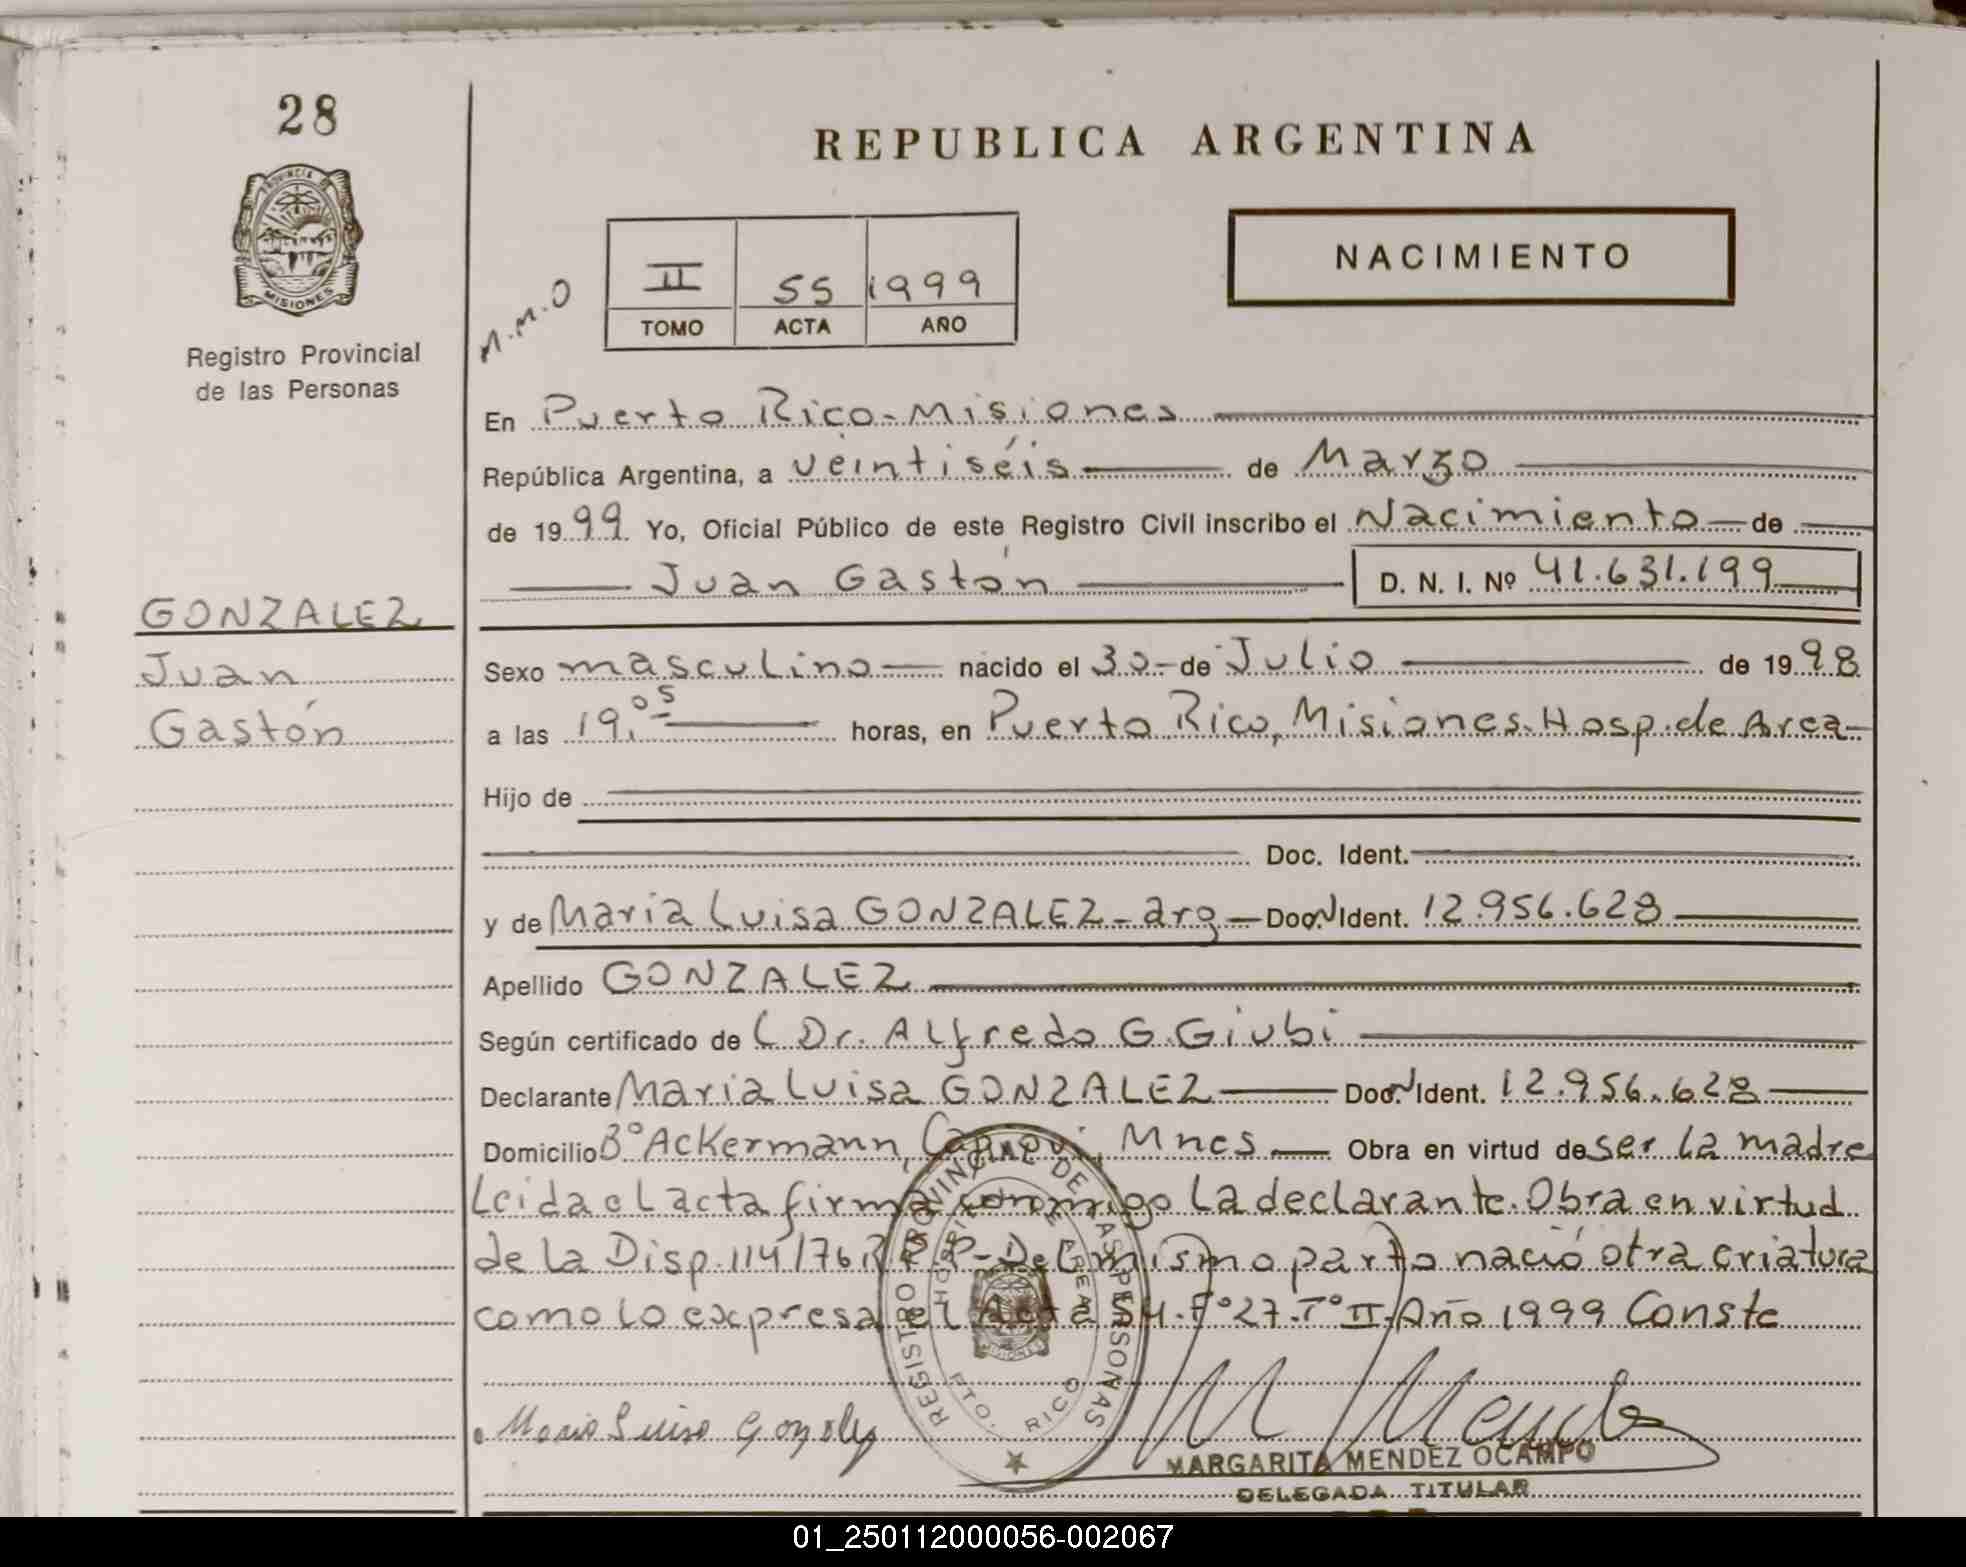 28
REPUBLICA ARGENTINA
PROVINCIA DE
MISIONES
Registro Provincial
de las Personas
M.M.O
II 55 1999
TOMO ACTA AÑO
NACIMIENTO
En Puerto Rico-Misiones
República Argentina, a veintiséis de Marzo
de 1999 Yo, Oficial Público de este Registro Civil inscribo el Nacimiento de
Juan Gastón D. N. I. Nº 41.631.199
GONZALEZ
Juan
Gastón
Sexo masculino nacido el 30 de Julio de 1998
a las 19.05 horas, en Puerto Rico, Misiones. Hosp. de Area
Hijo de
Doc. Ident.
y de María Luisa GONZALEZ - arg Doc. Ident. 12.956.628
Apellido GONZALEZ
Según certificado de L Dr. Alfredo G. Giubi
Declarante María Luisa GONZALEZ Doc. Ident. 12.956.628
Domicilio Bº Ackermann, Capioví, Mnes Obra en virtud de ser la madre
Leida el acta firma conmigo la declarante. Obra en virtud
de la Disp. 114/76 R.P.P- Del mismo parto nació otra criatura
como lo expresa el Acta 54. Fº 27. Tº II. Año 1999 Conste
REGISTRO PROVINCIAL DE LAS PERSONAS
HOSPITAL DE AREA
PTO. RICO
Maria Luisa Gonzalez
M Mendez
MARGARITA MENDEZ OCAMPO
DELEGADA TITULAR
01_250112000056-002067